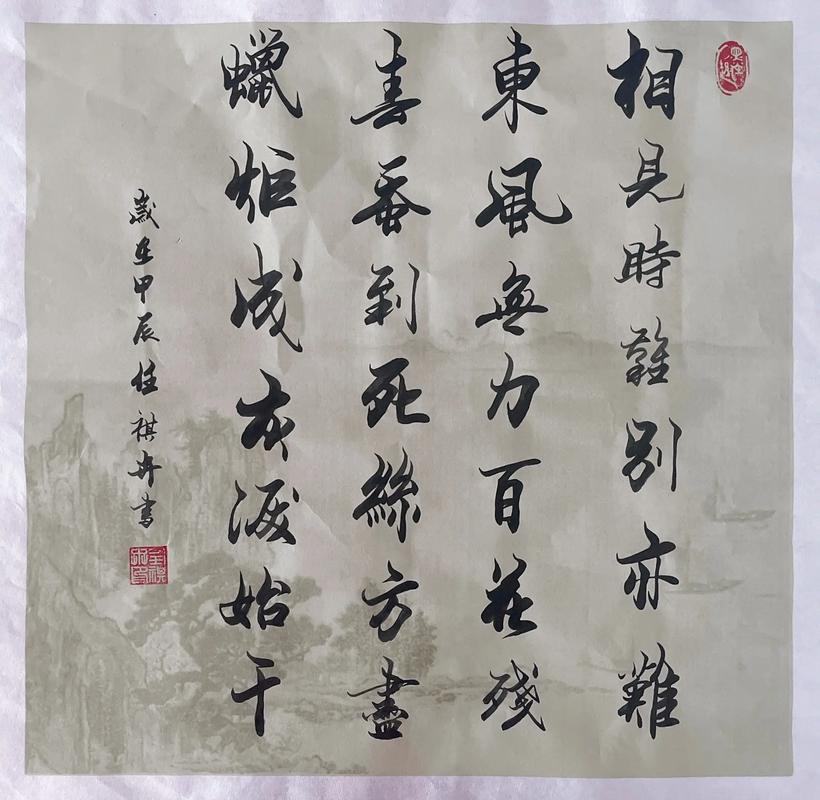 相見時難別亦難
東風無力百花殘
春蚕到死絲方盡
蠟炬成灰淚始干
歲在甲辰任祺卉書